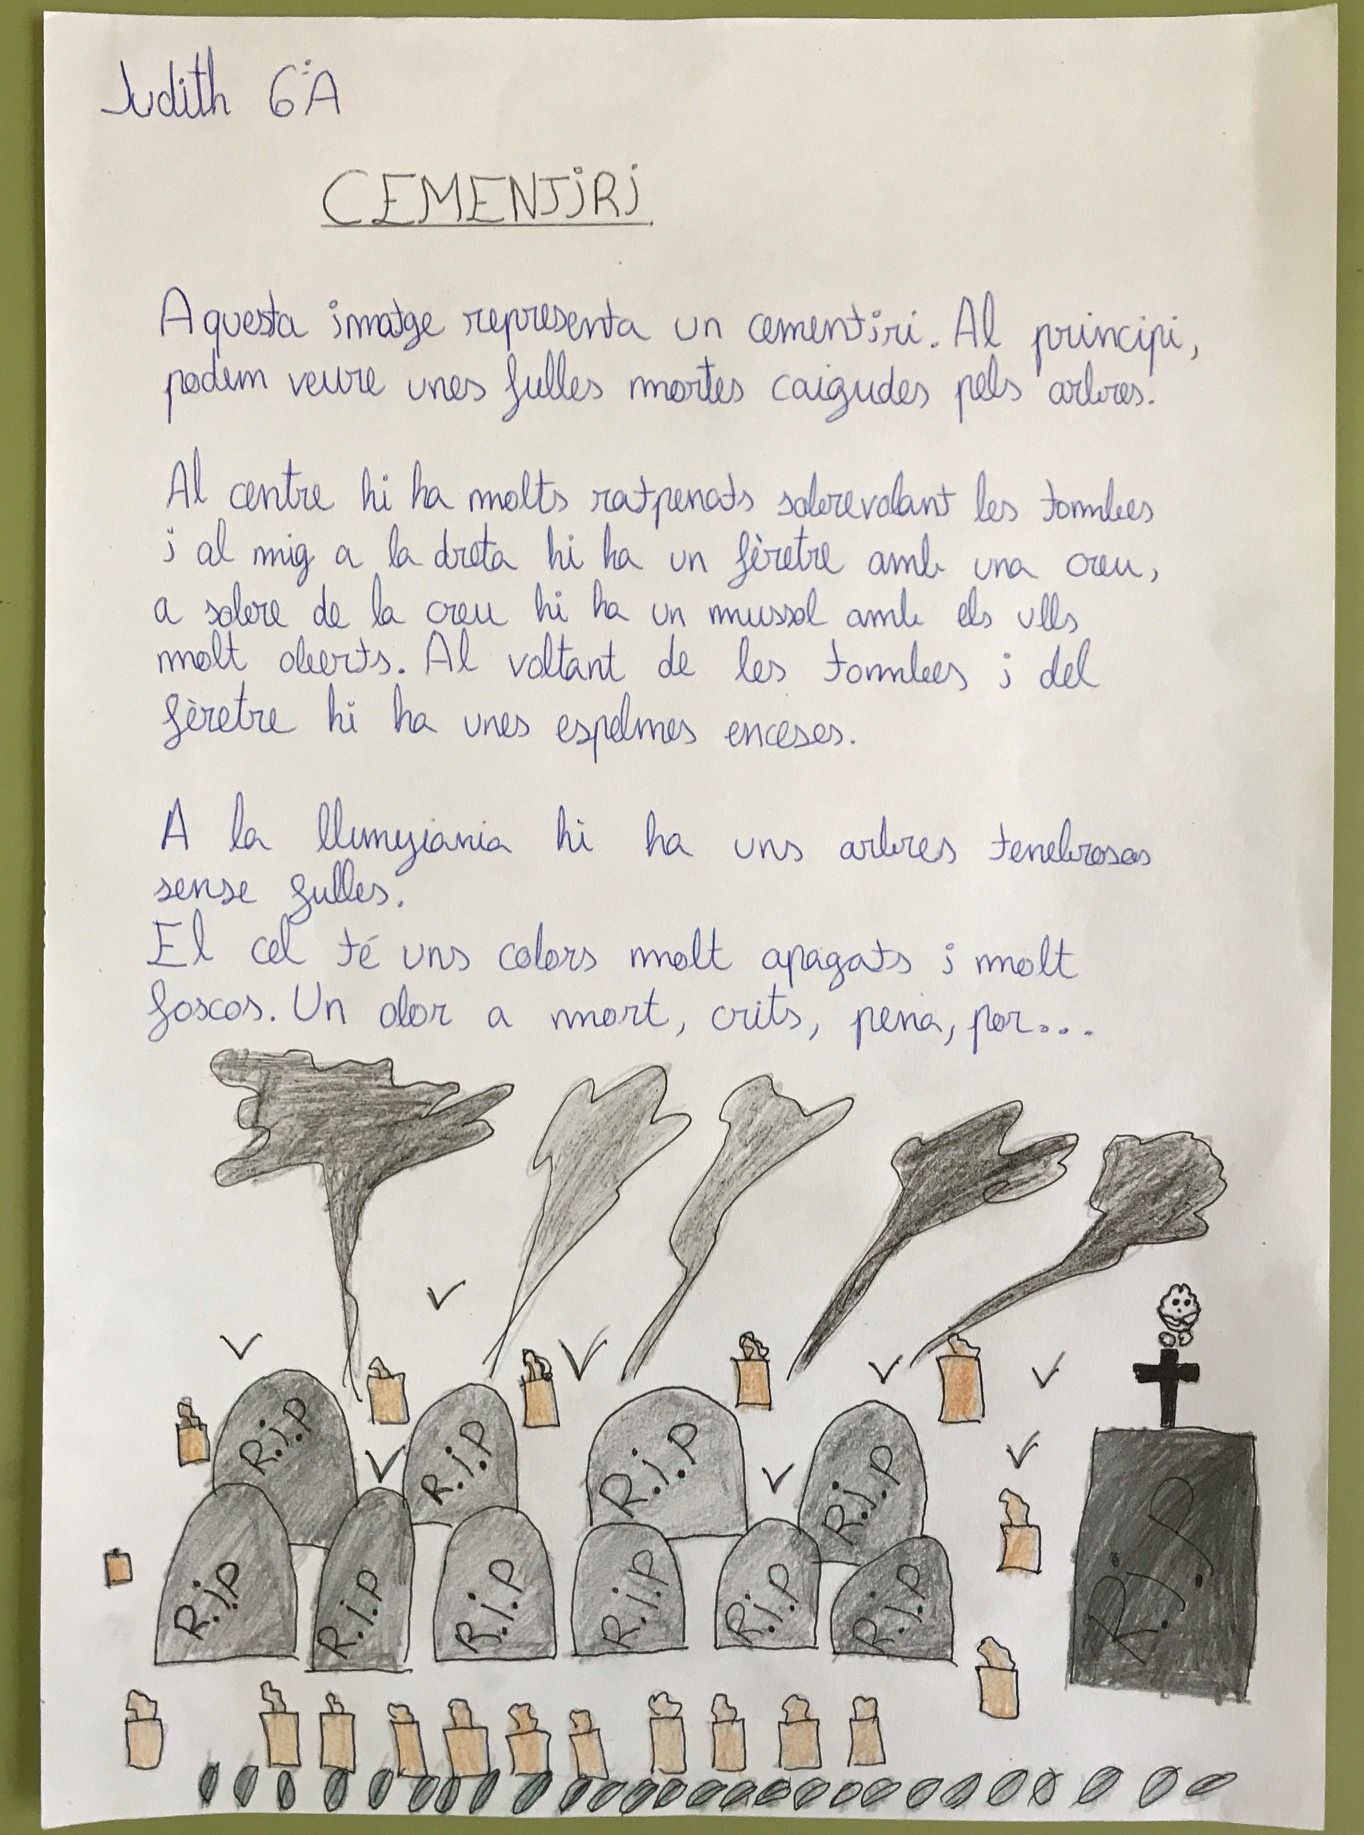 Judith 6èA
CEMENTIRI
Aquesta imatge representa un cementiri. Al principi,
podem veure unes fulles mortes caigudes pels arbres.
Al centre hi ha molts ratpenats sobrevolant les tombes
i al mig a la dreta hi ha un fèretre amb una creu,
a sobre de la creu hi ha un mussol amb els ulls
molt oberts. Al voltant de les tombes i del
fèretre hi ha unes espelmes enceses.
A la llunyiania hi ha uns arbres tenebrosos
sense fulles.
El cel té uns colors molt apagats i molt
foscos. Un olor a mort, crits, pena, por...
R.i.P
R.i.P
R.i.P
R.i.P
R.i.P
R.i.P
R.i.P
R.i.P
R.i.P
R.i.P
R.i.P